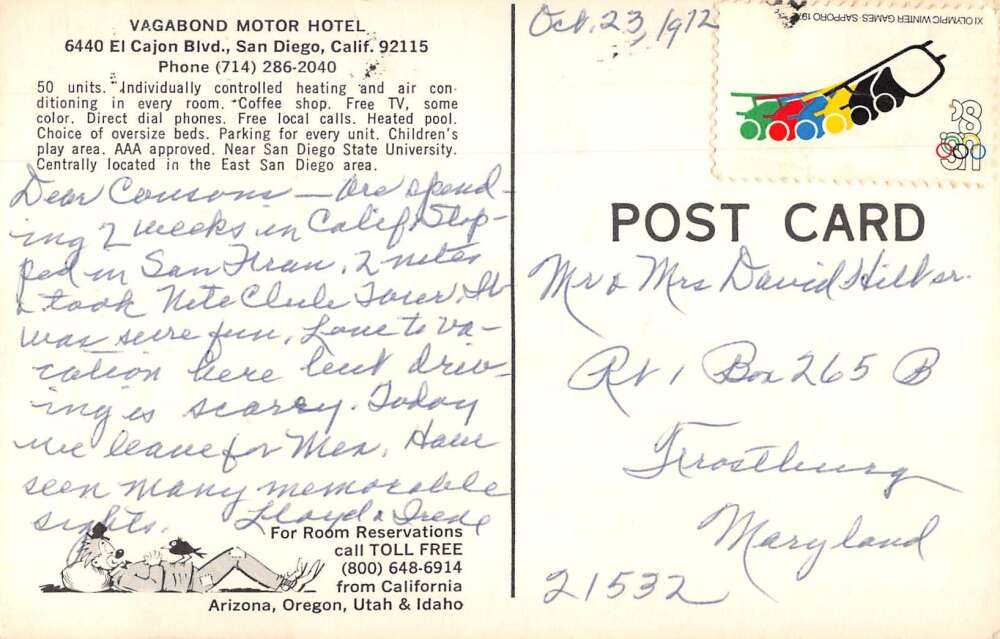 VAGABOND MOTOR HOTEL
6440 El Cajon Blvd., San Diego, Calif. 92115
Phone (714) 286-2040
50 units. Individually controlled heating and air con-
ditioning in every room. Coffee shop. Free TV, some
color. Direct dial phones. Free local calls. Heated pool.
Choice of oversize beds. Parking for every unit. Children's
play area. AAA approved. Near San Diego State University.
Centrally located in the East San Diego area.
Dear Cousons — Are spend-
ing 2 weeks in Calif. Stop-
ped in San Fran, 2 nites
& took Nite Club Tour. It
was sure fun, Love to va-
cation here but driv-
ing is scarey. Today
we leave for Mex, Have
seen many memorable
sights. Lloyd & Irene
For Room Reservations
call TOLL FREE
(800) 648-6914
from California
Arizona, Oregon, Utah & Idaho
Oct. 23, 1972
XI OLYMPIC WINTER GAMES SAPPORO 197
8c
US
POST CARD
Mr & Mrs David Hill sr.
Rt 1 Box 265 B
Frostburg
Maryland
21532